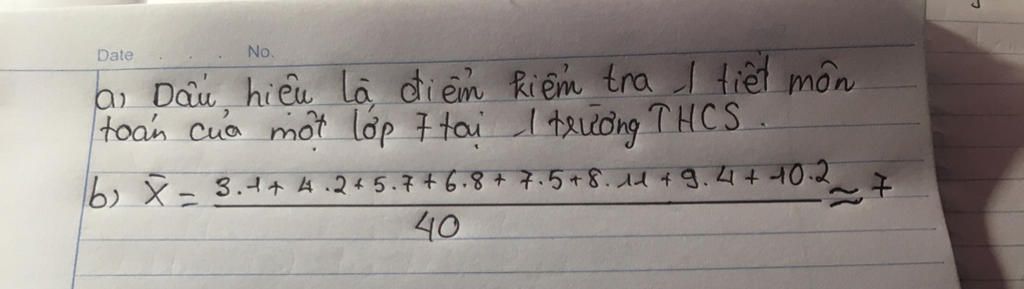 Date . . . . No.
a) Dấu hiệu là điểm kiểm tra 1 tiết môn
toán của một lớp 7 tại 1 trường THCS.
b) X̄ = 3.1+ 4.2+5.7+6.8+7.5+8.11+9.4+10.2 ≈ 7
40